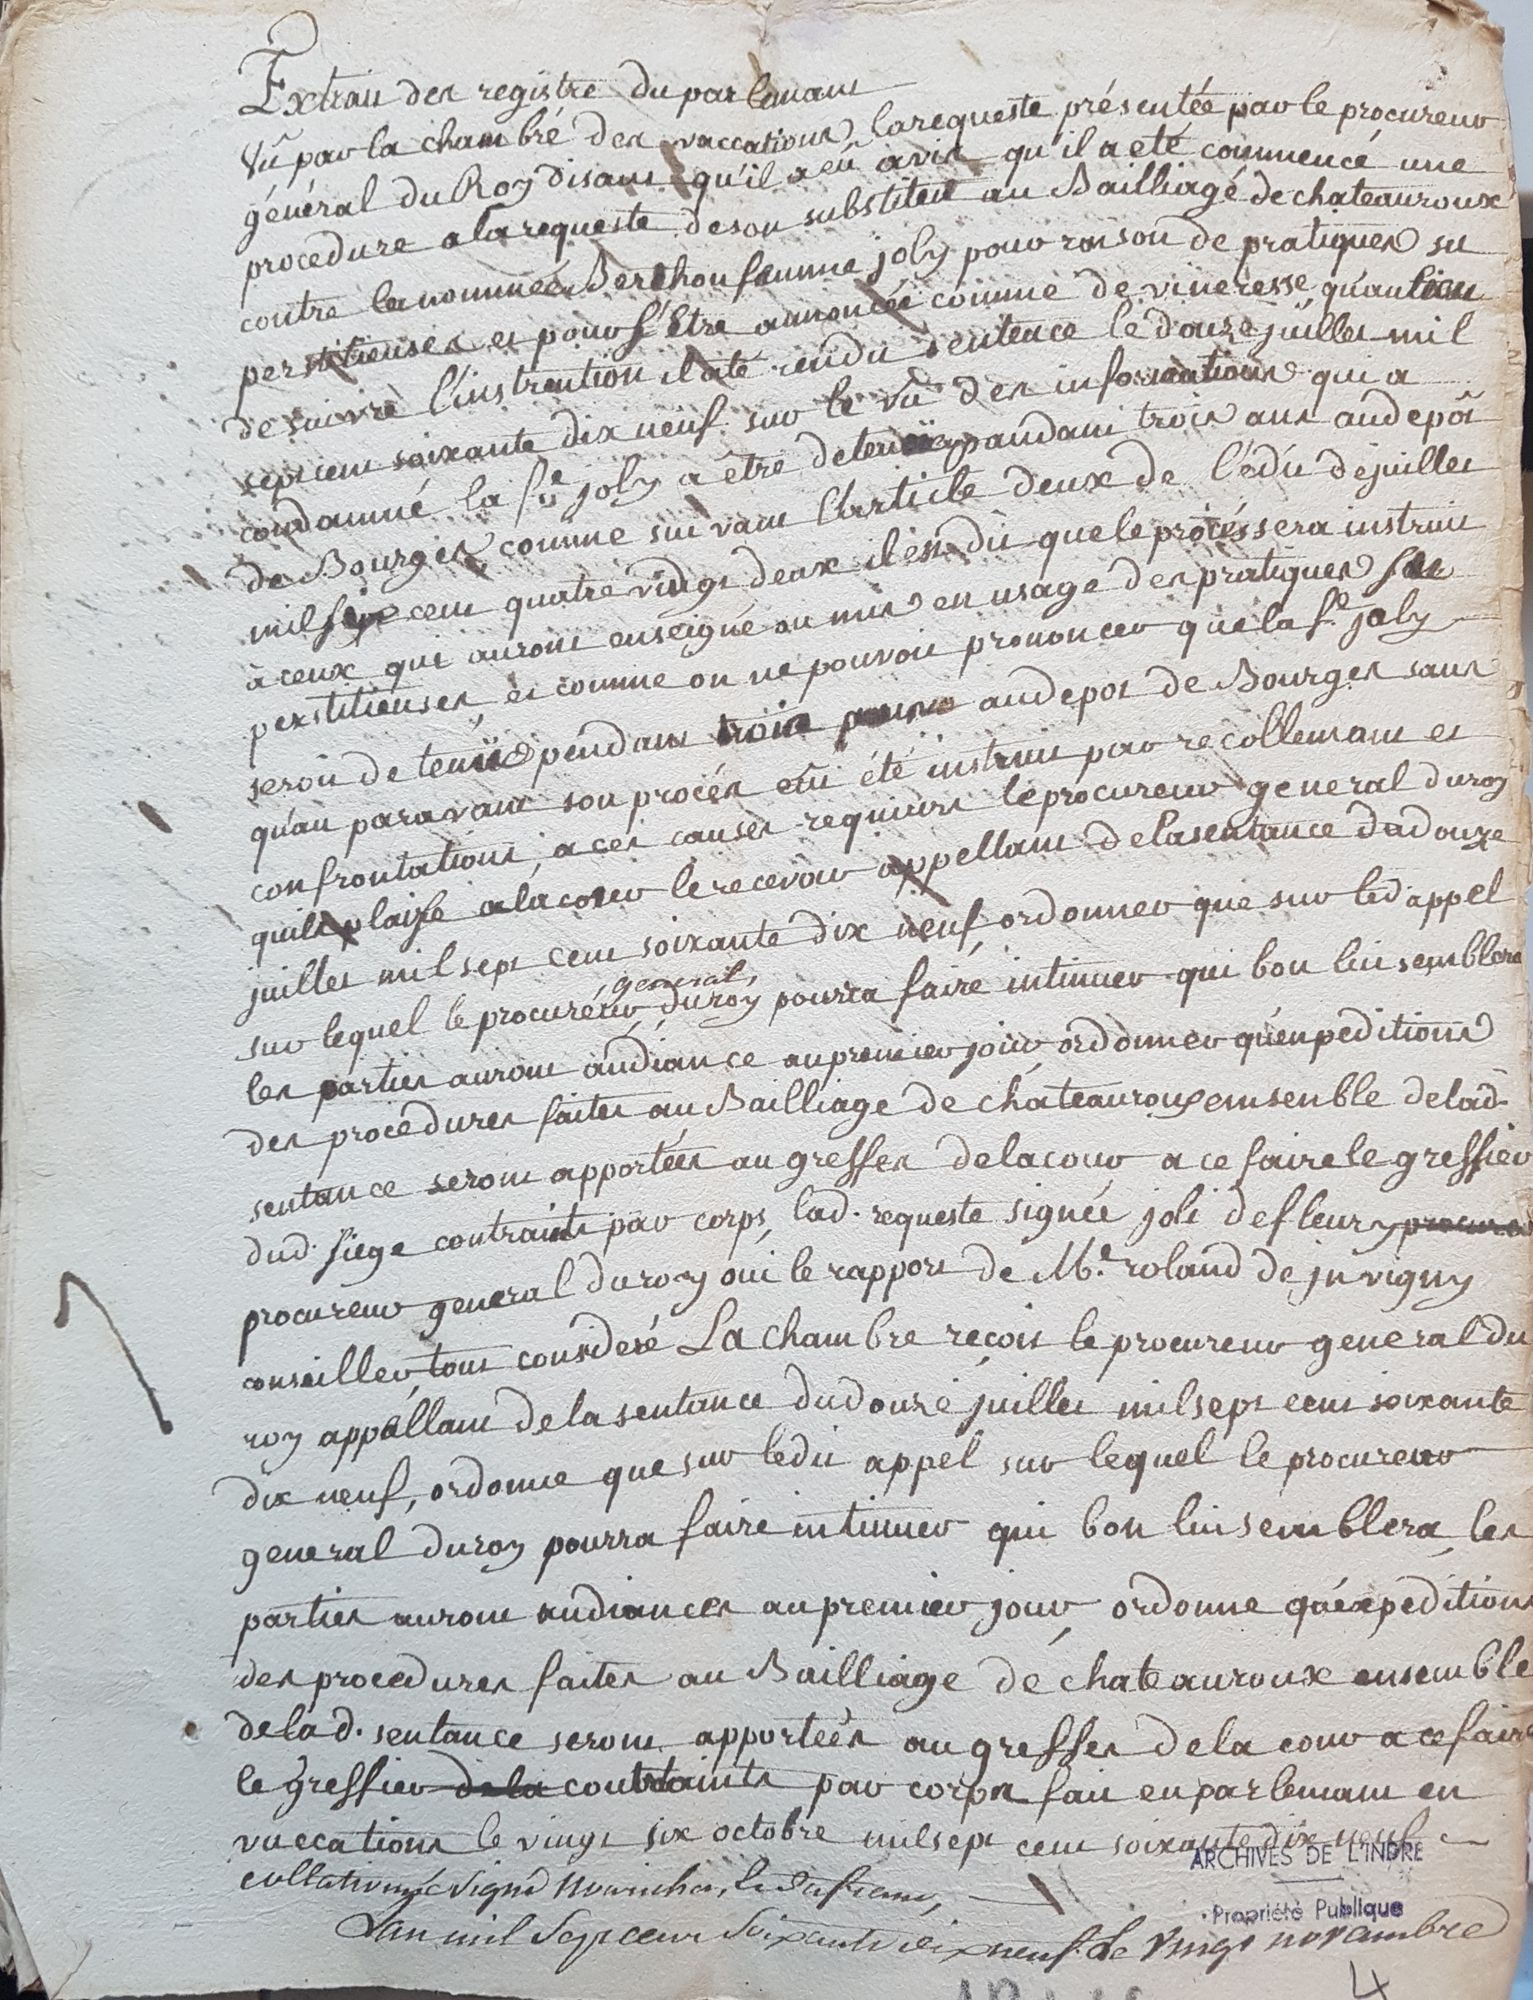 Extrait des registre du parlemant
Vû par la chambre des vaccations, la requeste présentée par le procureur
général du Roy disant qu'il a eû avis qu'il a eté commencé une
procedure a la requeste de son substitut au Bailliage de chateauroux
contre la nommée Berthou femme joly pour raison de pratiques su
perstitieuses et pour s'être annoncée comme devineresse, qu'au lieu
de suivre l'instruction il a été rendu sentence le douze juillet mil
sept cent soixante dix neuf sur le vû des informations qui a
condamné la fe joly a être detenüe pandant trois ans au depôt
de Bourges, comme suivant l'article deux de l'édit de juillet
mil six cent quatre vingt deux il est dit que le procés sera instruit
à ceux qui auront enseigné ou mis en usage des pratiques su
perstitieuses, et comme on ne pouvoit prononcer que la fe joly
seroit detenüe pendant trois au depot de Bourges sans
qu'au paravant son procés eût été instruit par recollemant et
confrontations, a ces causes requiert le procureur general du roy
quil plaise a la cour le recevoir appellant de la sentance du douze
juillet mil sept cent soixante dix neuf ordonner que sur led appel
sur lequel le procureur general du roy pourra faire intimer qui bon lui semblera
les parties auront audiance au premier jour ordonner qu'enpeditions
des procedures faites au Bailliage de chateauroux emsenble de lad.
sentance seront apportées au greffes de la cour a ce faire le greffier
dud. siege contraint par corps, lad. requeste signée joli de fleury procureu
procureur general du roy oui le rapport de Me. roland de juvigny
conseiller, tout consideré La chambre reçoit le procureur general du
roy appellant de la sentance du douze juillet mil sept cent soixante
dix neuf, ordonne que sur ledit appel sur lequel le procureur
general du roy pourra faire intimer qui bon lui semblera, les
parties auront audiances au premier jour, ordonne qu'expéditions
des procedures faites au Bailliage de chateauroux ensemble
de lad. sentance seront apportées au greffes de la cour a ce faire
le greffier de la contraints par corps fait en parlemant en
vaccations le vingt six octobre mil sept cent soixante dix neuf
collationné signé
L'an mil Sept cent Soixante dix neuf Le Vingt novambre
ARCHIVES DE L'INDRE
Propriété Publique
4